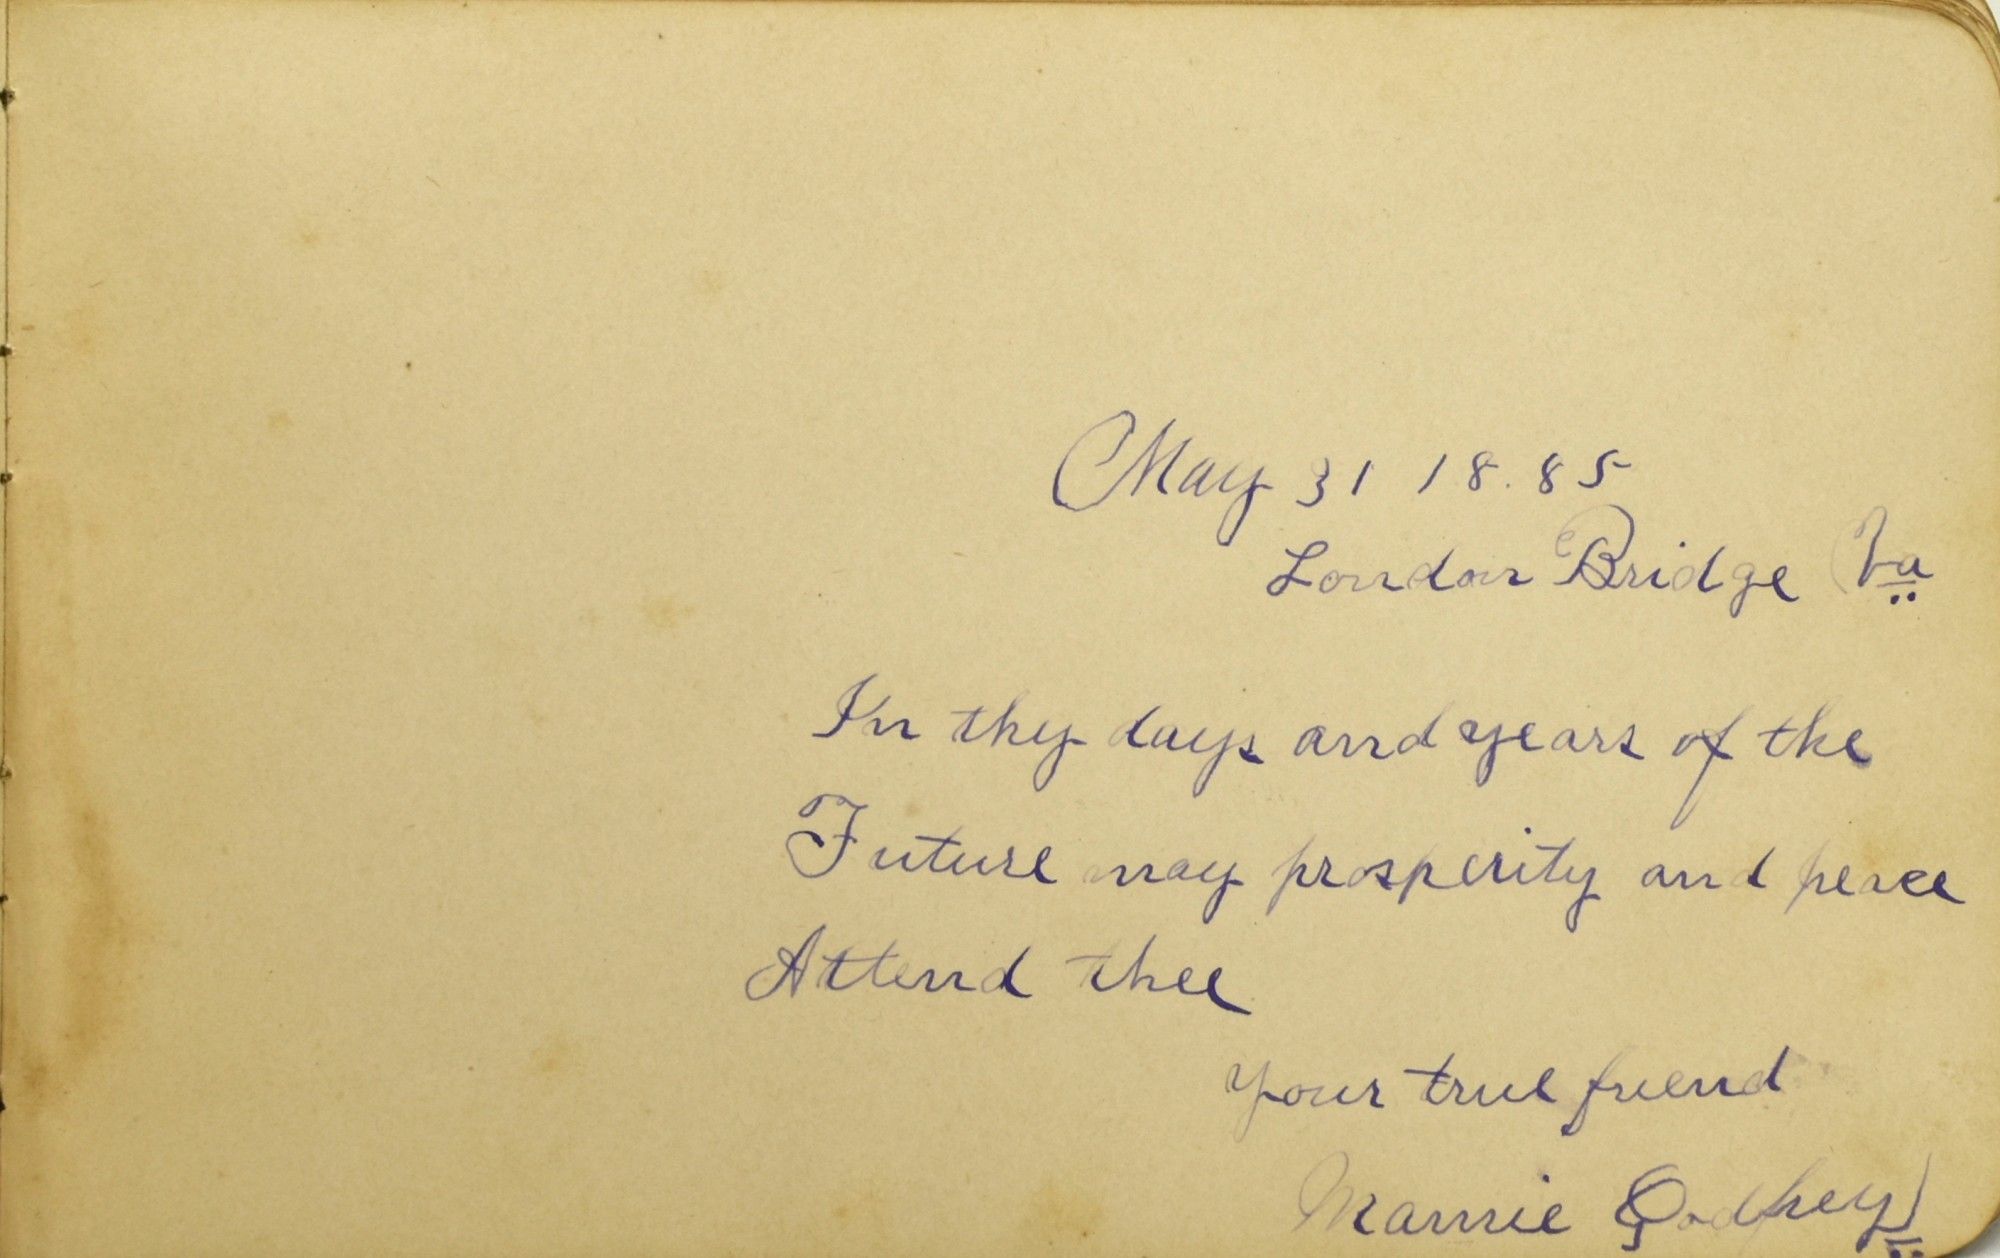 May 31 18.85
London Bridge Va
In thy days and years of the
Future may prosperity and peace
Attend thee
your true friend
Mamie